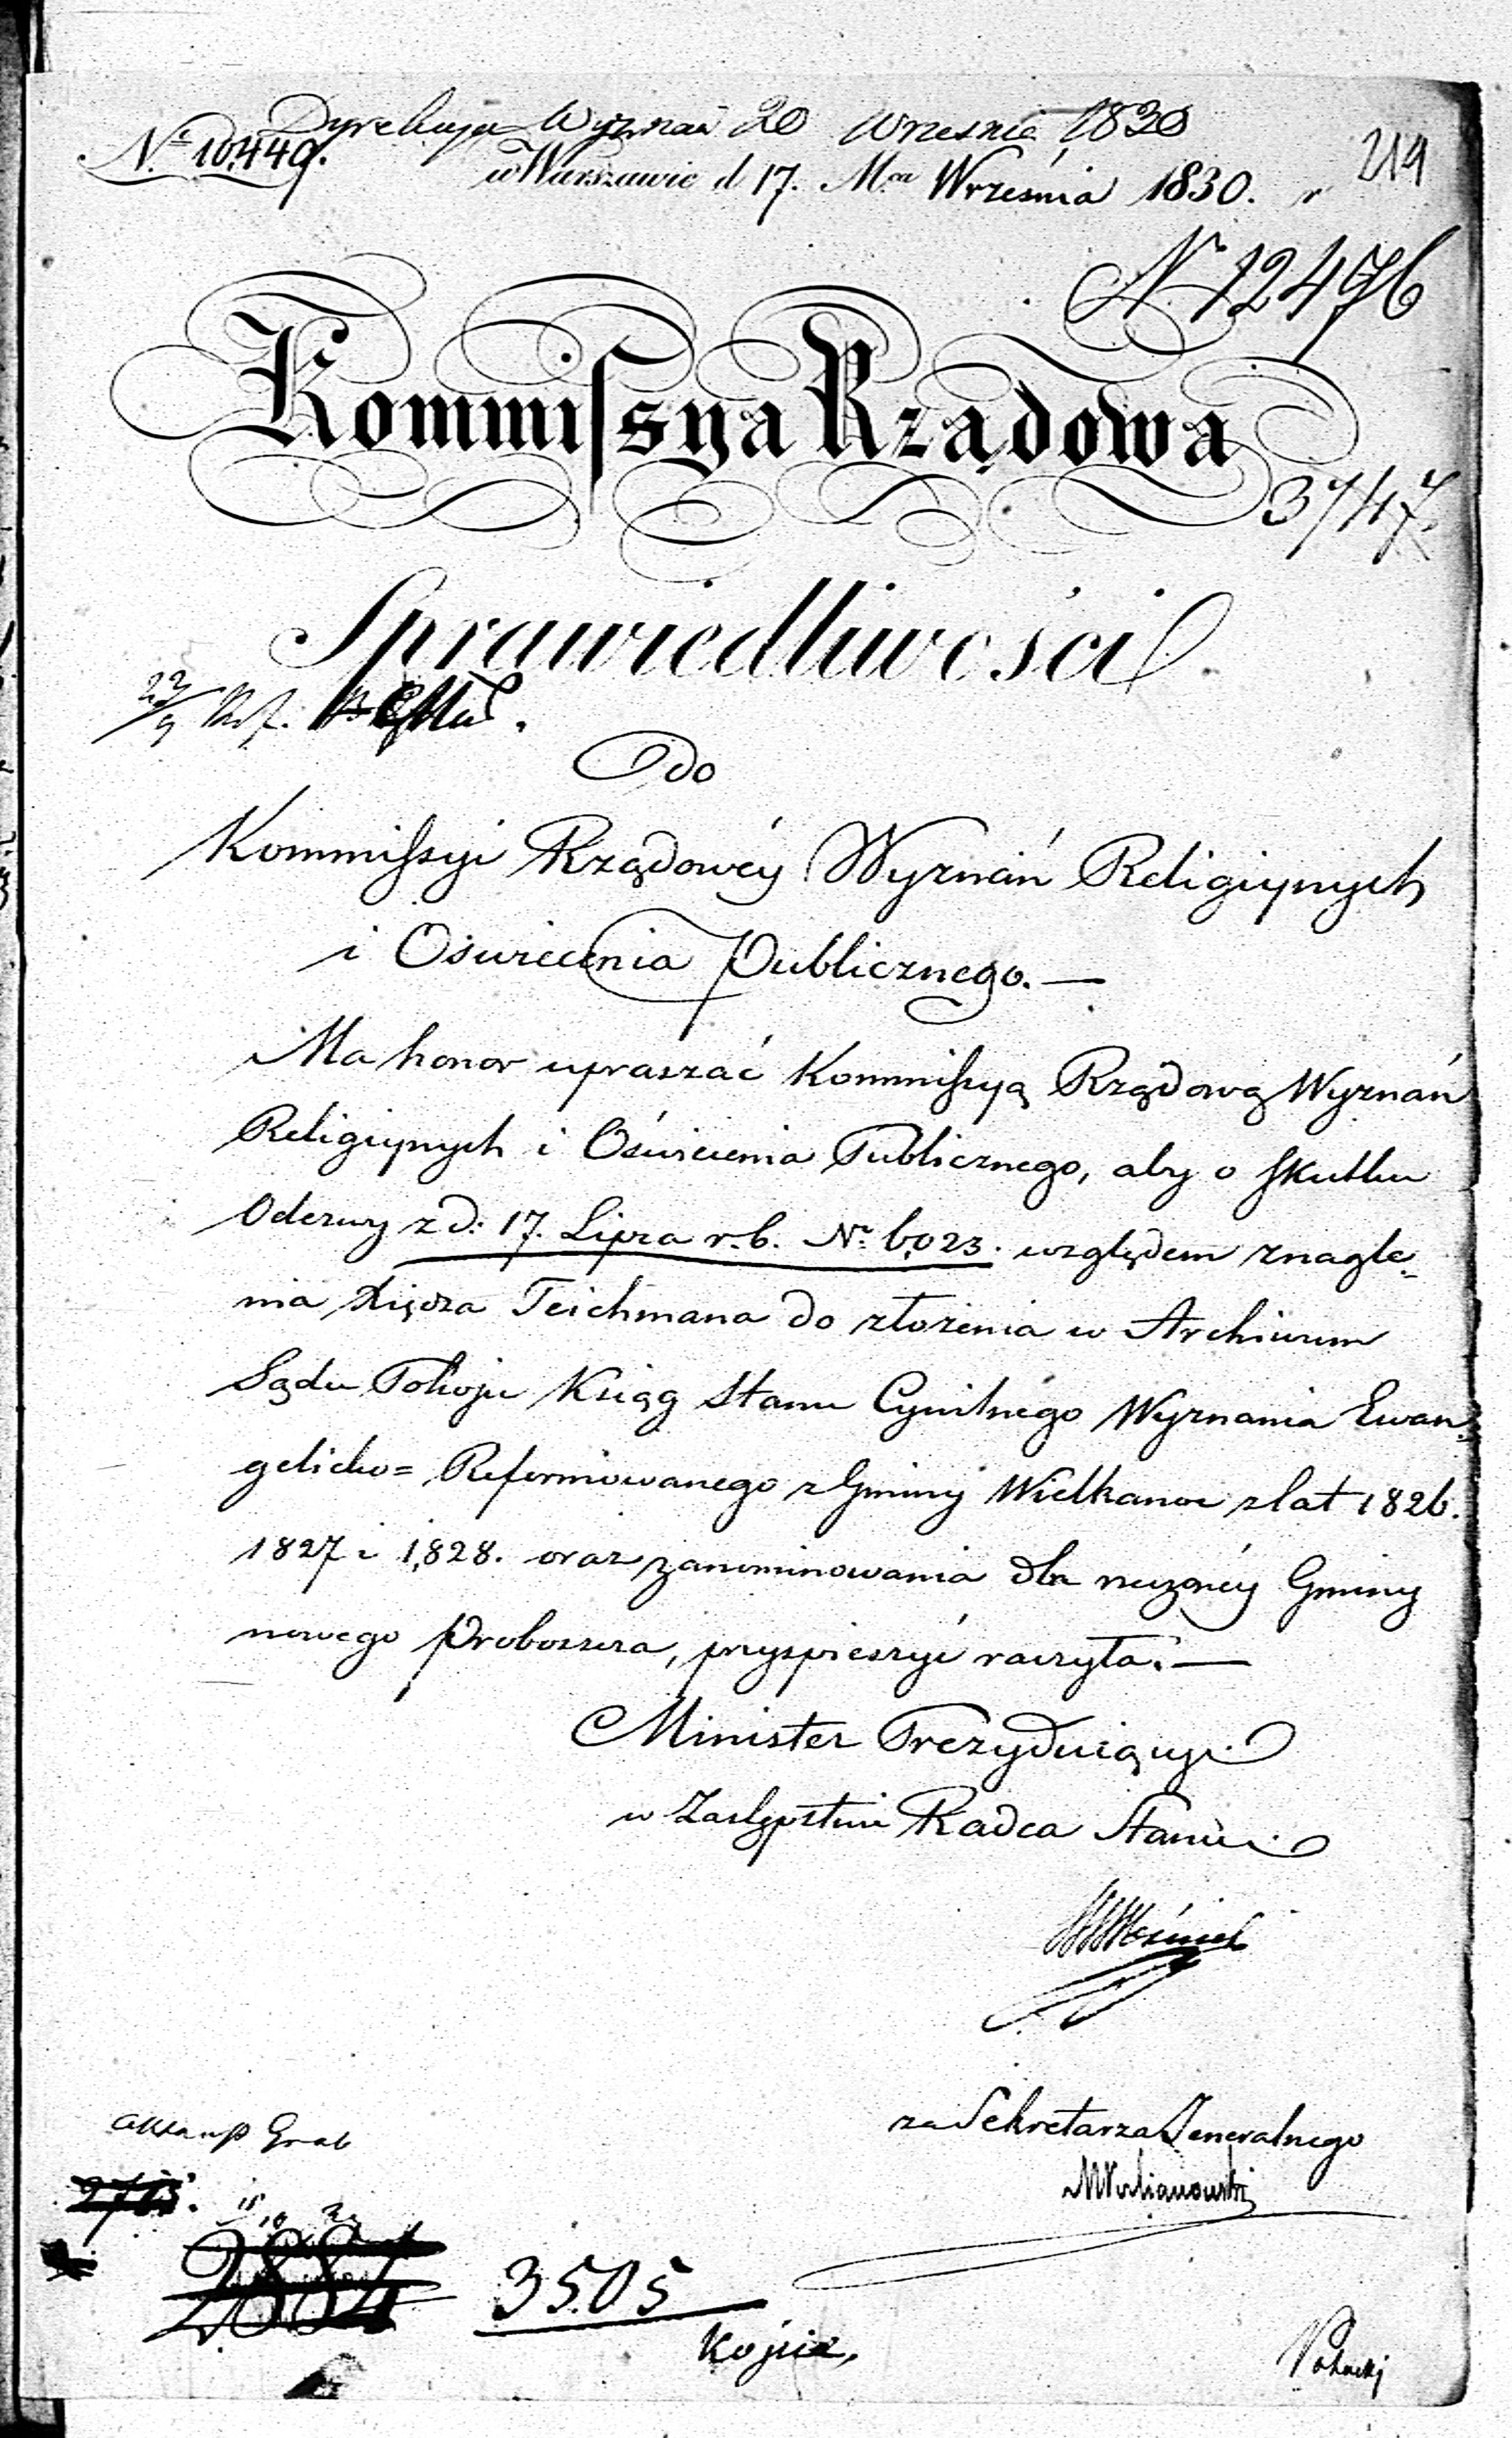 Dyrekcya Wyznań 20 Wrzesnia 1830
Nr. 10449.
w Warszawie d 17. Mca Września 1830. r
219
N 12476
Kommissya Rządowa
3747.
Sprawiedliwości
22/9 Ref.
Do
Kommissyi Rządowéy Wyznań Religiynych
i Oświecenia Publicznego. —
Ma honor upraszać Kommissyą Rządową Wyznań
Religiynych i Oświecenia Publicznego, aby o skutku
Odezwy z d: 17. Lipca r. b. Nr. 6,023. względem znagle-
nia Xiędza Teichmana do złożenia w Archiwum
Sądu Pokoju Ksiąg Stanu Cywilnego Wyznania Ewan-
gelicko= Reformowanego z Gminy Wielkanoc z lat 1826.
1827 i 1,828. oraz zanominowania dla rzeczonéy Gminy
nowego Proboszcza, przyspieszyć raczyła. —
Minister Prezyduiący.
w Zastępstwie Radca Stanu.
Woźnicki
za Sekretarza Jeneralnego
2713.
2884
3505
Kopia,